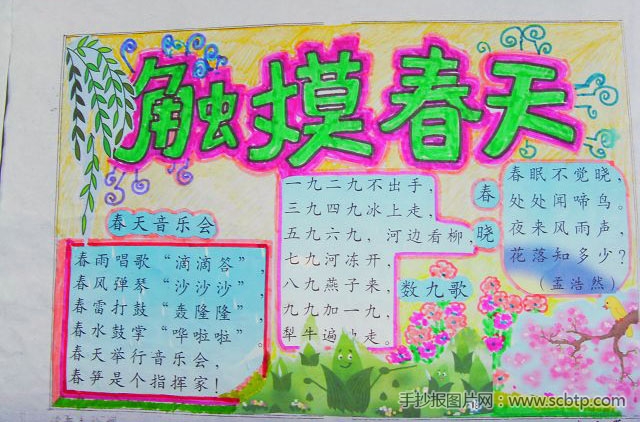 触摸春天
春天音乐会
春雨唱歌“滴滴答”，
春风弹琴“沙沙沙”，
春雷打鼓“轰隆隆”，
春水鼓掌“哗啦啦”。
春天举行音乐会，
春笋是个指挥家！
一九二九不出手，
三九四九冰上走，
五九六九，河边看柳，
七九河冻开，
八九燕子来，
九九加一九，
犁牛遍地走。
数九歌
春晓
春眠不觉晓，
处处闻啼鸟。
夜来风雨声，
花落知多少？
（孟浩然）
手抄报图片网：www.scbtp.com